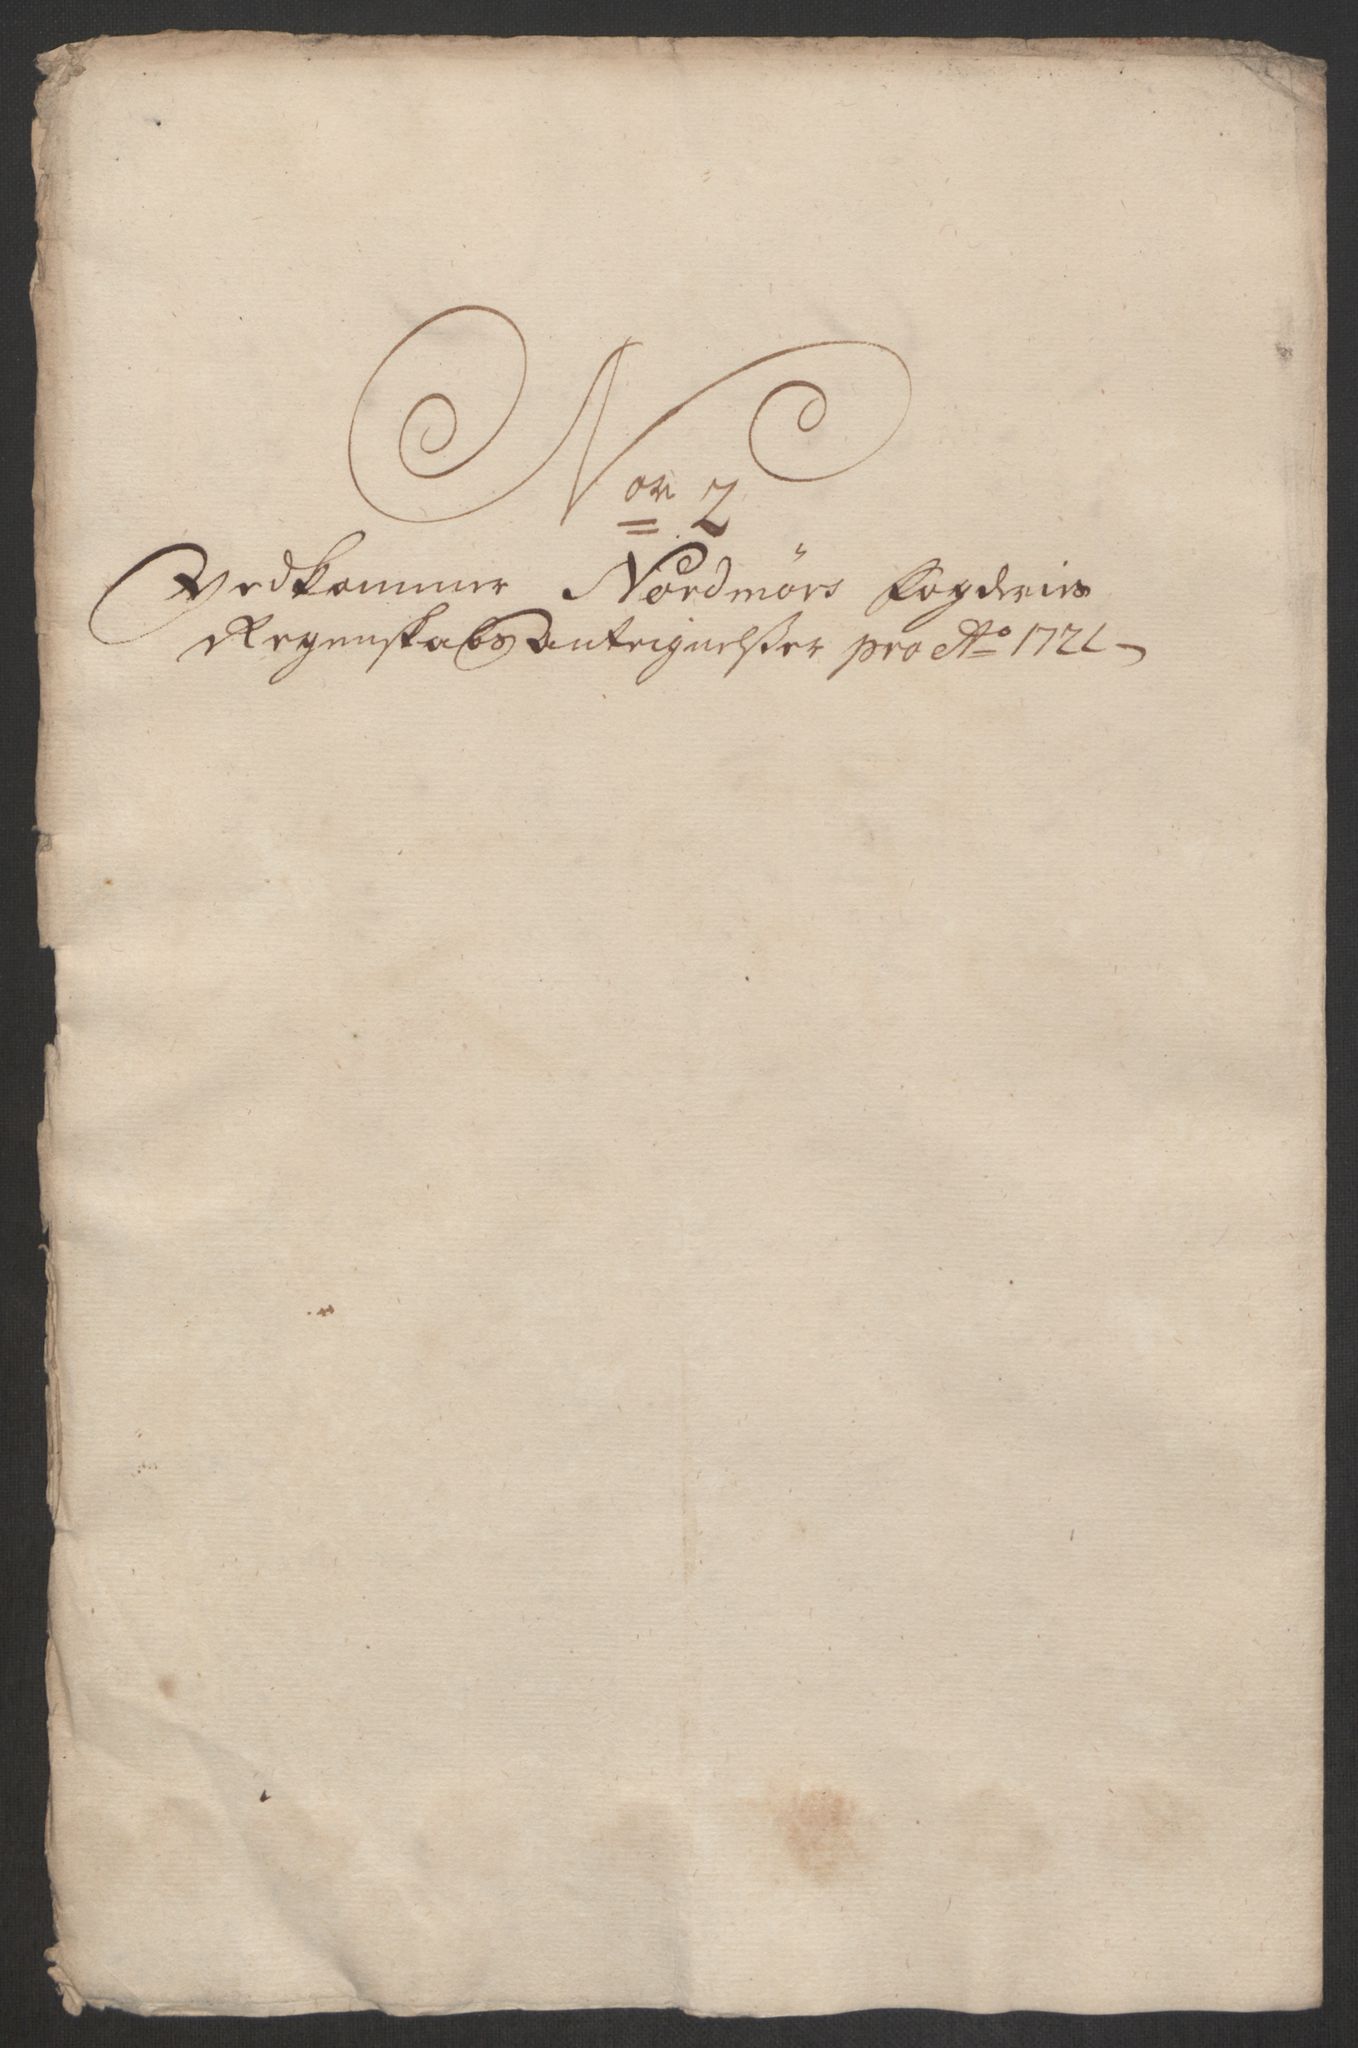 Nor 2
Vedkommer Nordmörs Fogderies
Regenskabs Anteignelsser pro Ao 1721